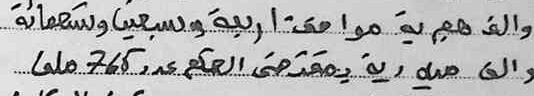 والف هجرية موافق اربعة وسبعين وتسعمائة
والف ميلادية بمقتضى الحكم عدد 765 ملف